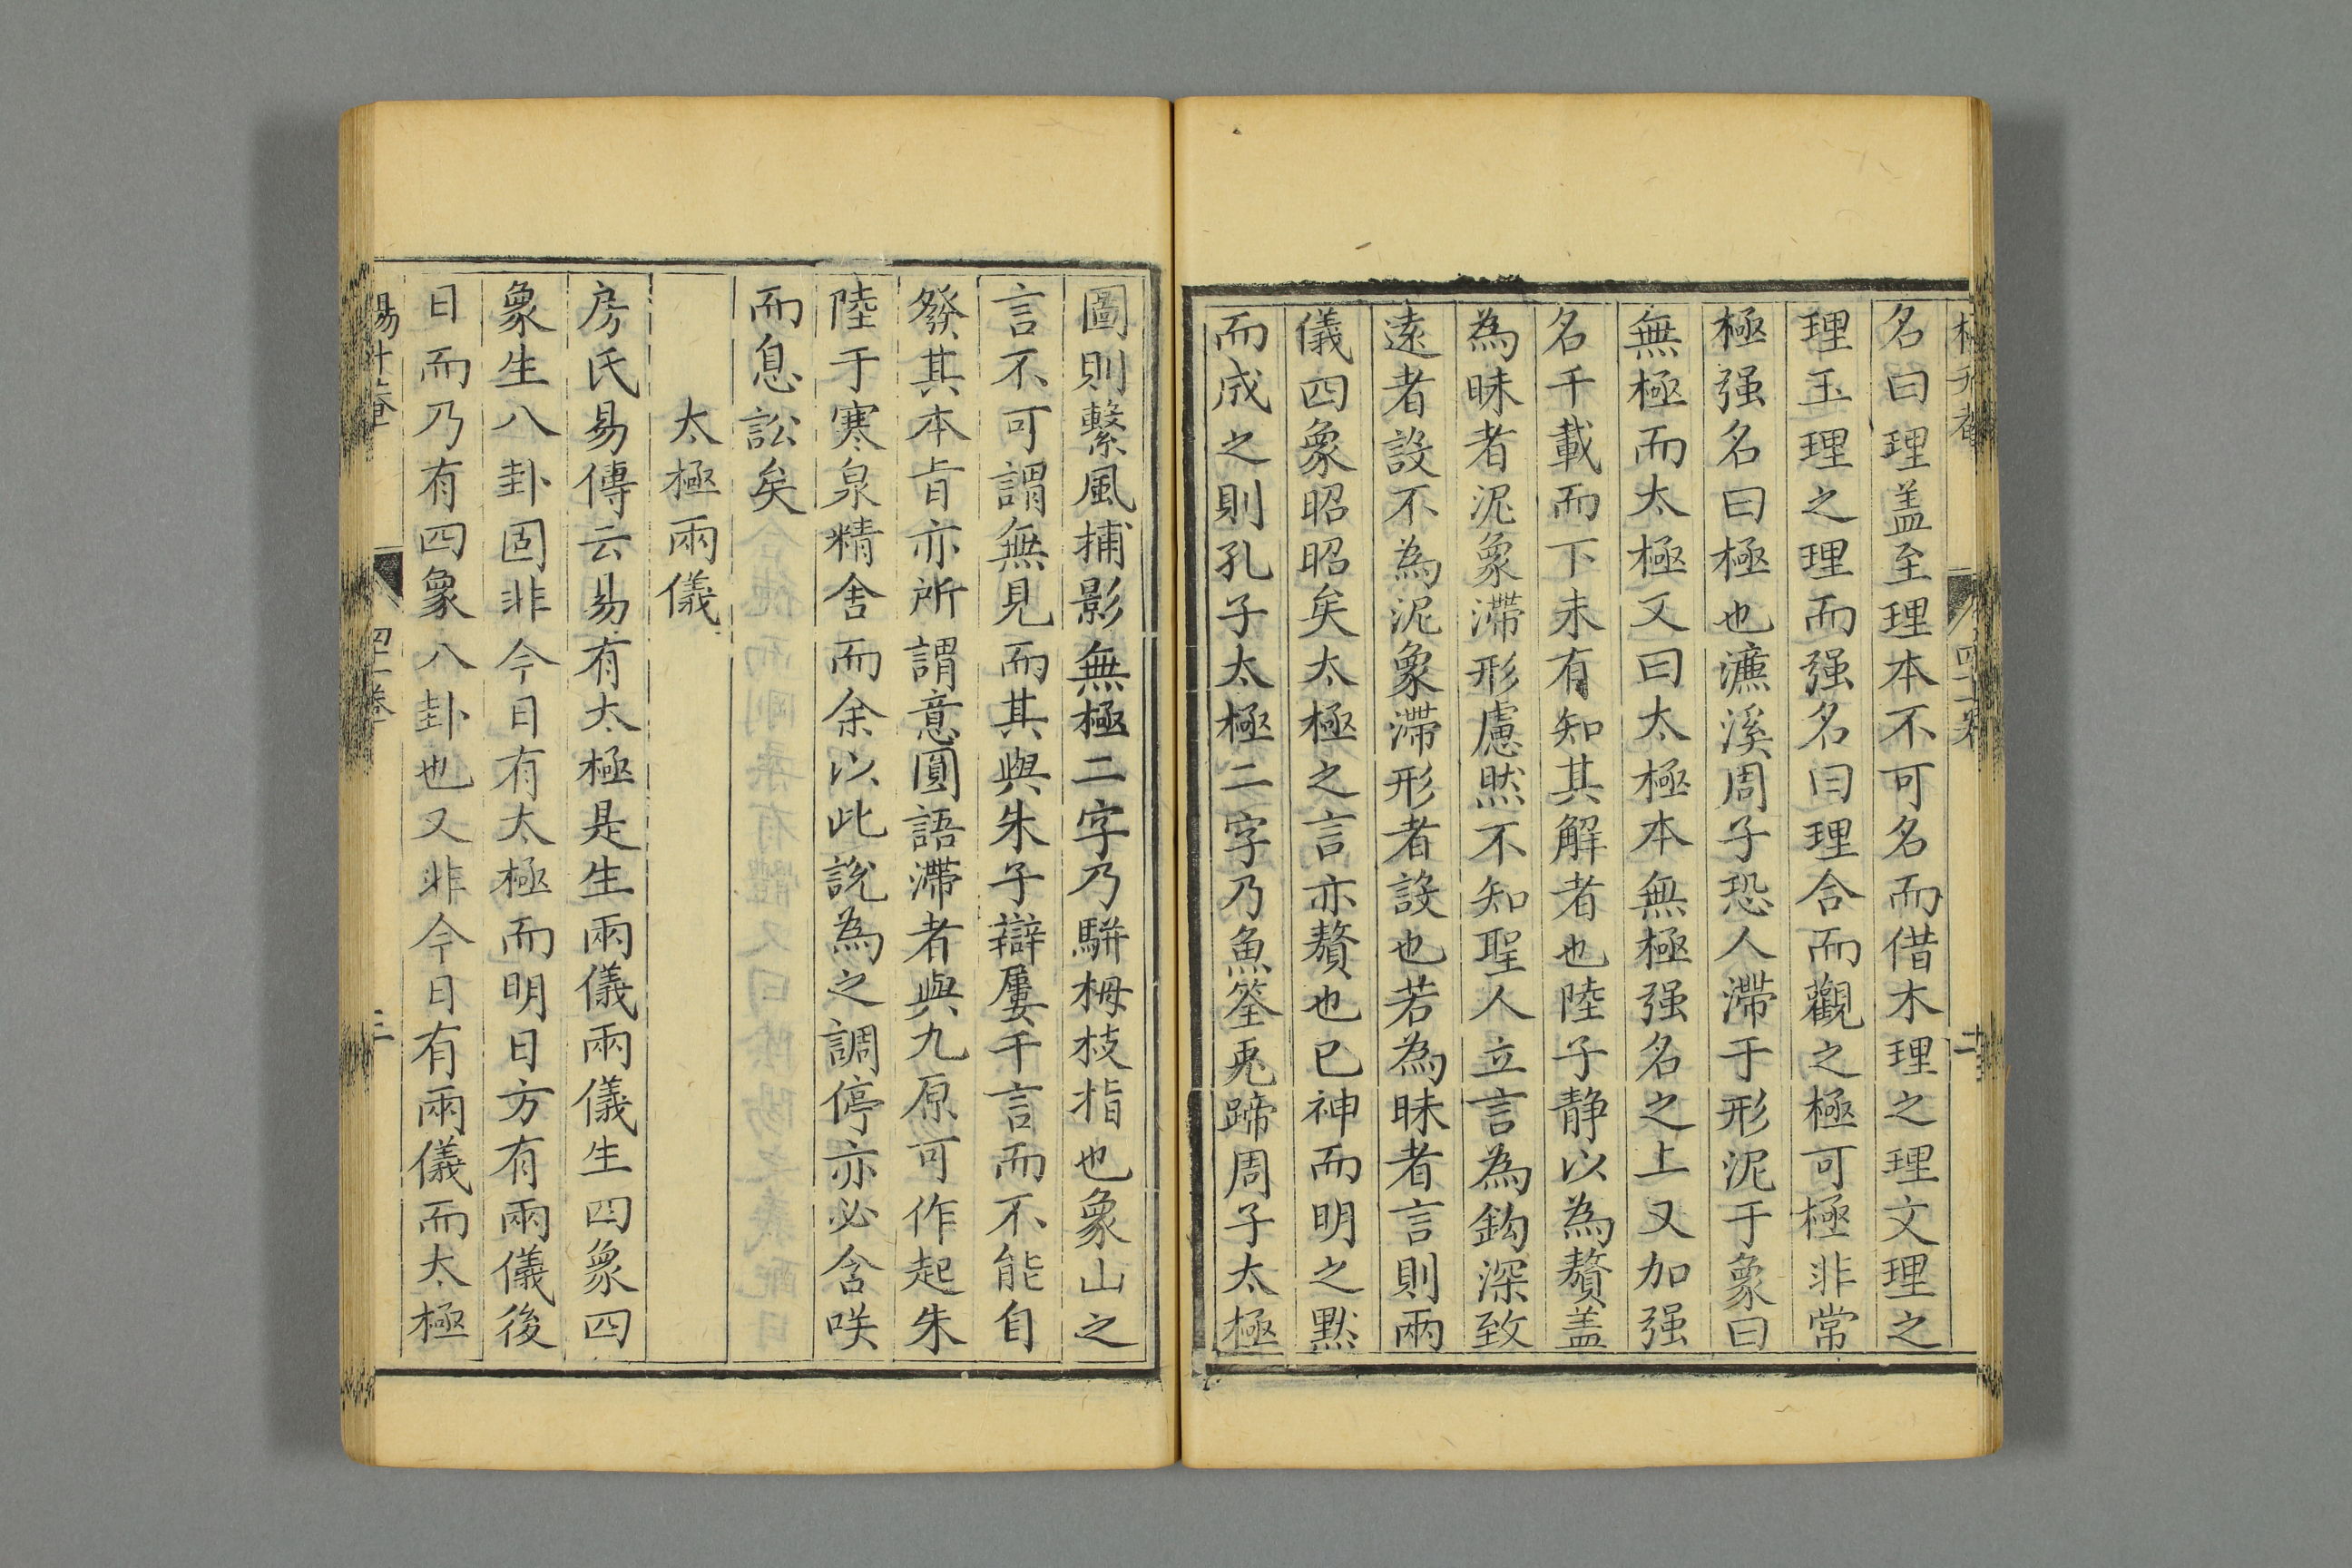 名曰理盖至理本不可名而借木理之理文理之
理玉理之理而强名曰理合而觀之極可極非常
極强名曰極也濂溪周子恐人滯于形泥于象曰
無極而太極又曰太極本無極强名之上又加强
名千載而下未有知其解者也陸子静以為贅盖
為昧者泥象滯形慮然不知聖人立言為鈎深致
遠者設不為泥象滯形者設也若為昧者言則兩
儀四象昭昭矣太極之言亦贅也已神而明之默
而成之則孔子太極二字乃魚筌兎蹄周子太極
圖則繫風捕影無極二字乃駢栂枝指也象山之
言不可謂無見而其與朱子辯屢千言而不能自
發其本旨亦所謂意圓語滯者與九原可作起朱
陸于寒泉精舍而余以此說為之調停亦必含咲
而息訟矣
太極兩儀
房氏易傳云易有太極是生兩儀兩儀生四象四
象生八卦固非今日有太極而明日方有兩儀後
日而乃有四象八卦也又非今日有兩儀而太極
三